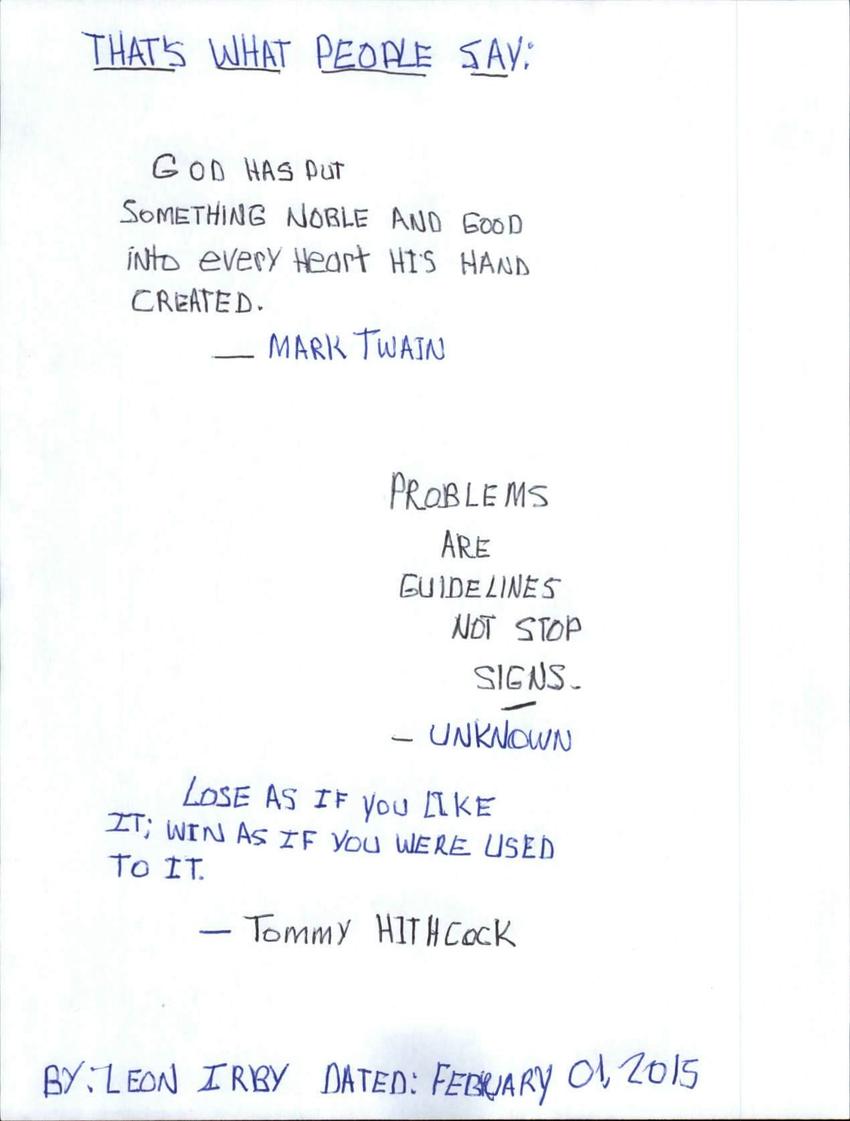 THAT'S WHAT PEOPLE SAY:
GOD HAS PUT
SOMETHING NOBLE AND GOOD
into every Heart HIS HAND
CREATED.
— MARK TWAIN
PROBLEMS
ARE
GUIDELINES
NOT STOP
SIGNS.
— UNKNOWN
LOSE AS IF you LIKE
IT; WIN AS IF YOU WERE USED
TO IT.
— Tommy HITHCOCK
BY: LEON IRBY DATED: FEBRUARY 01, 2015